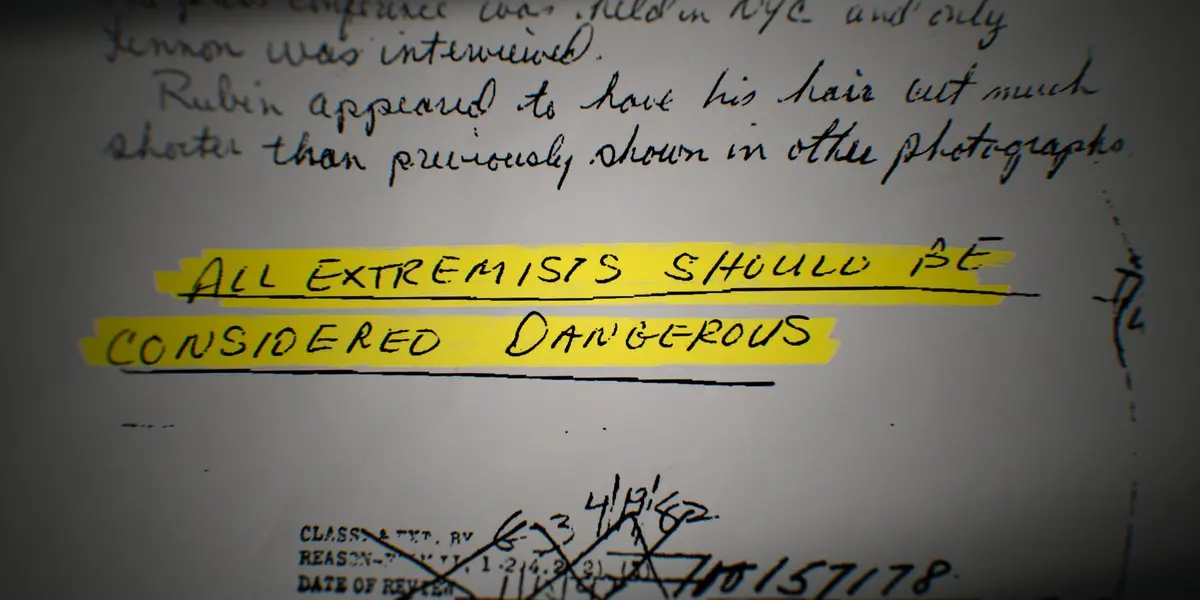 press conference was held in NYC and only
Lennon was interviewed.
Rubin appeared to have his hair cut much
shorter than previously shown in other photographs
ALL EXTREMISTS SHOULD BE
CONSIDERED DANGEROUS
4/13/82
CLASS. & EXT. BY G-3
REASON-
DATE OF REVIEW